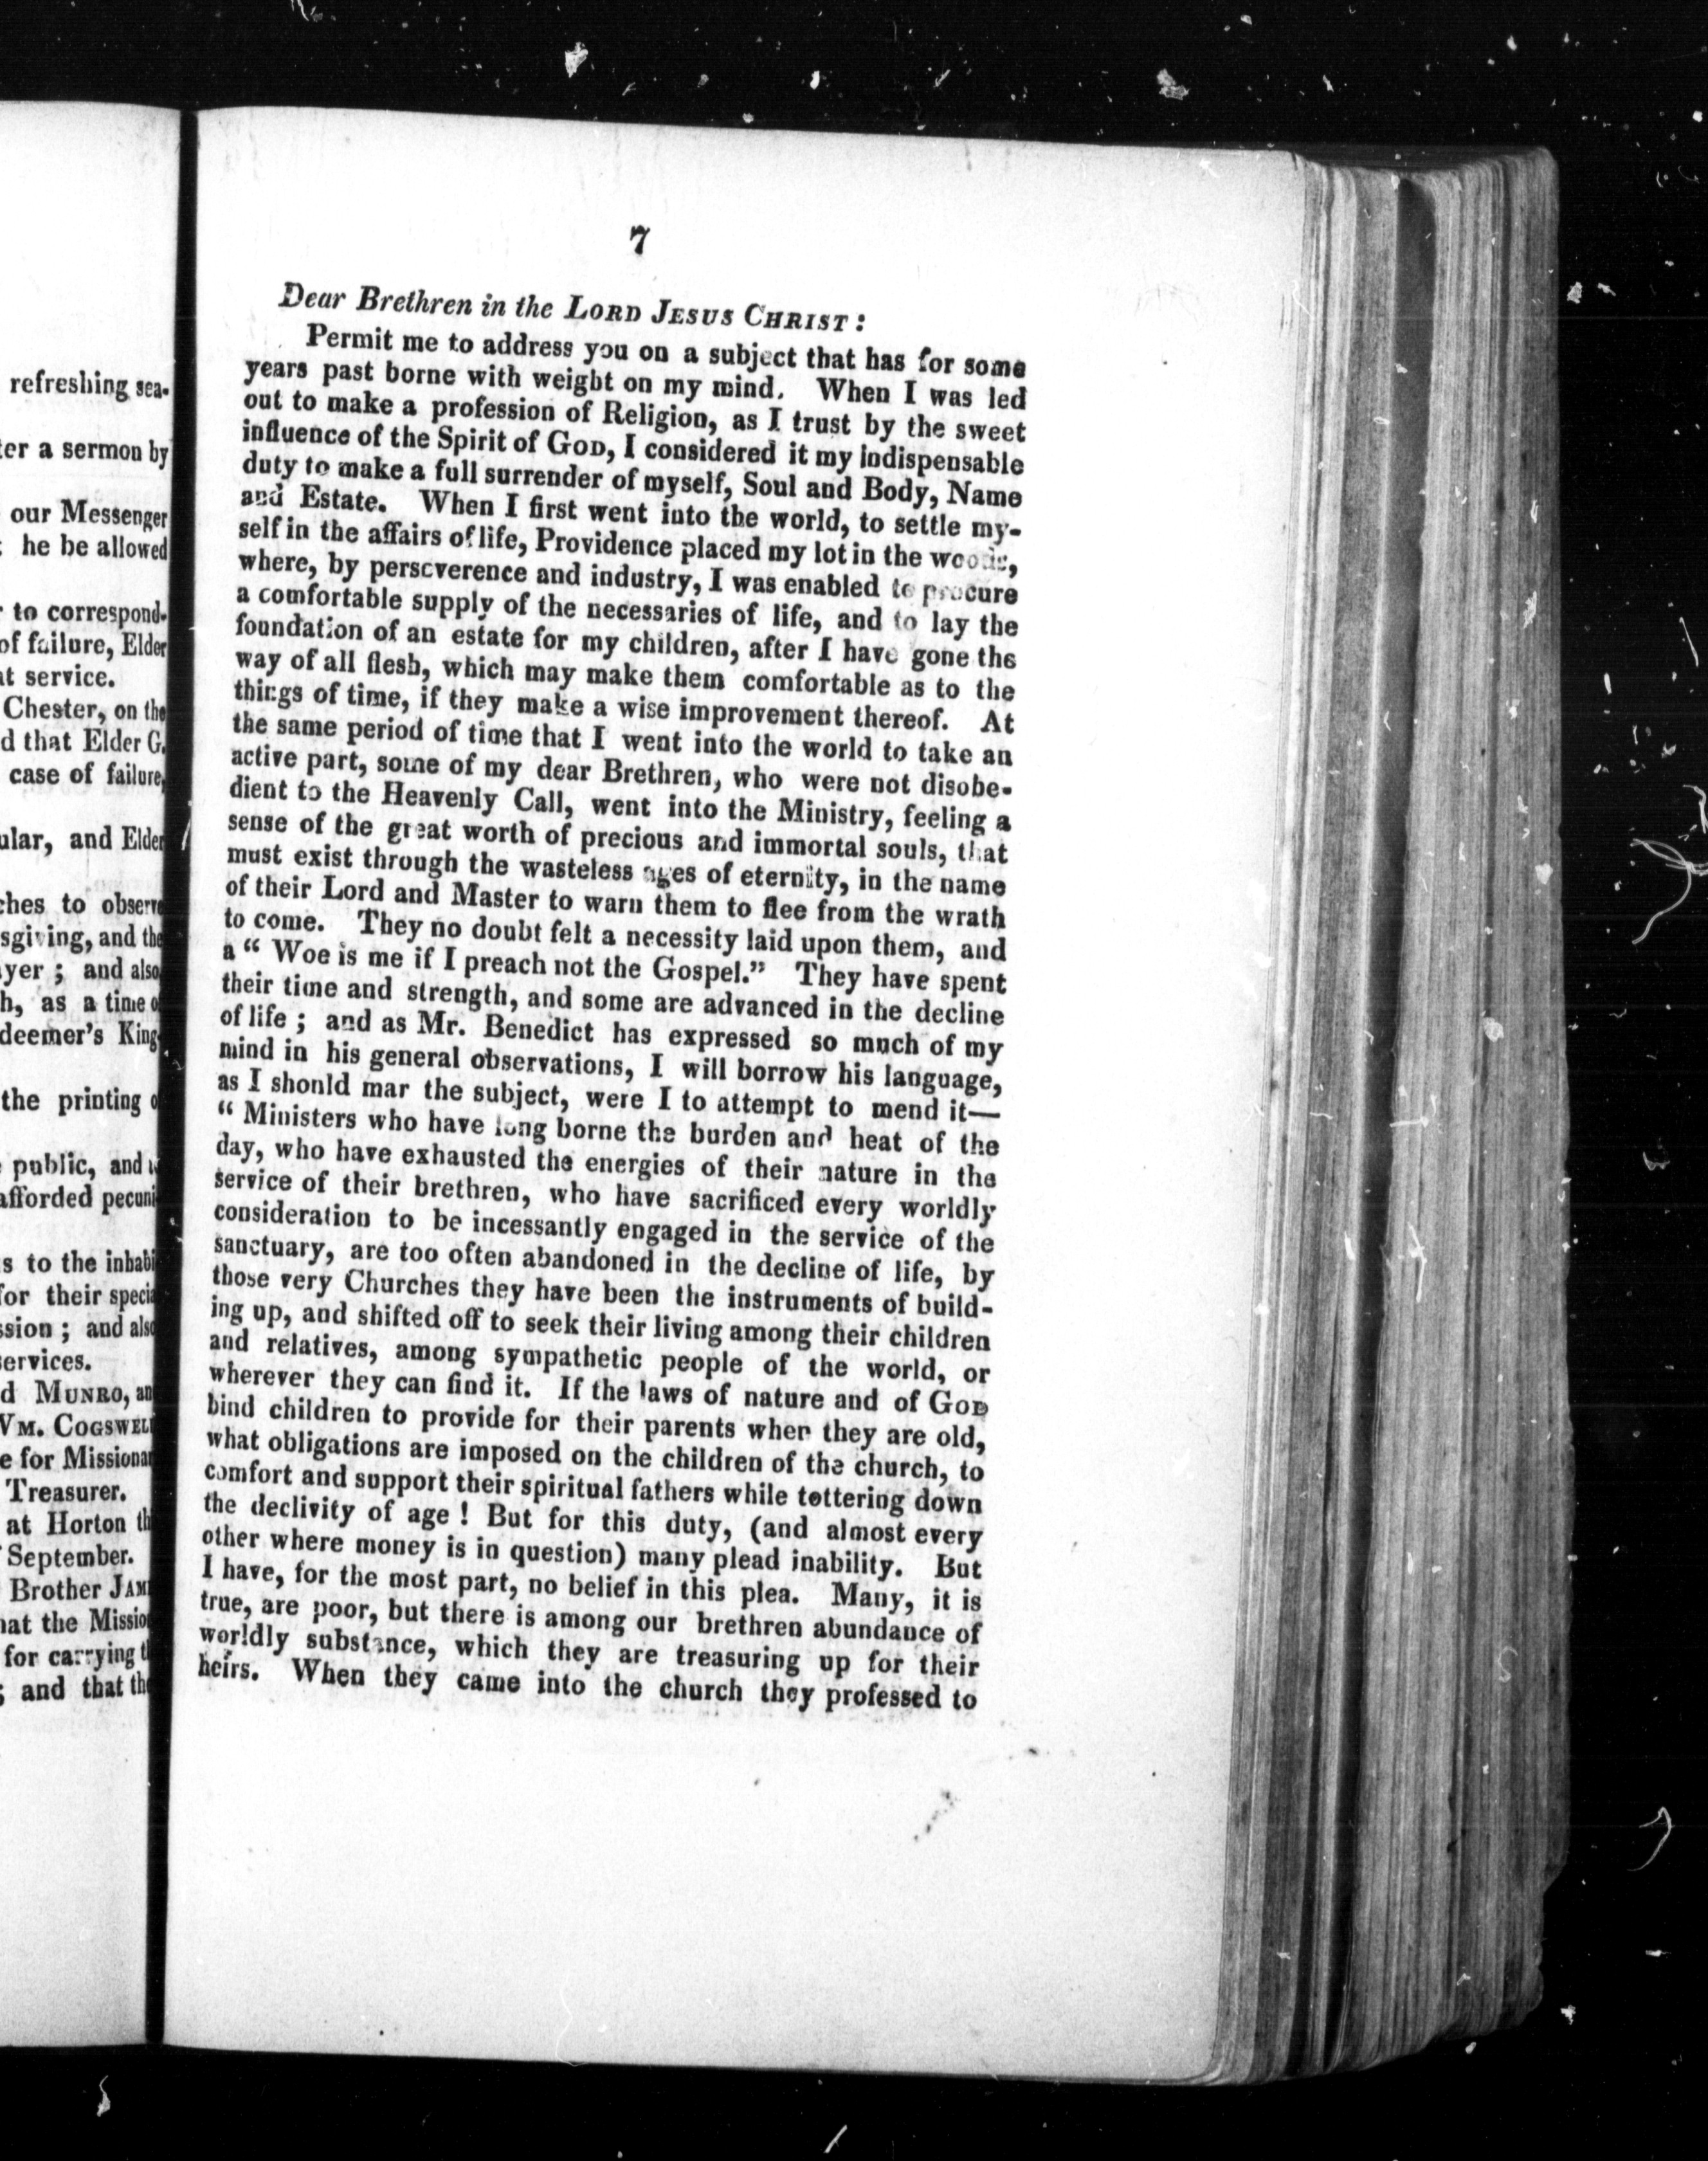 refreshing sea-
a sermon by
our Messenger
he be allowed
to correspond-
of failure, Elder
service.
Chester, on the
that Elder G.
case of failure,
and Elder
to observe
and the
; and also
as a time
King-
the printing
public, and
afforded
to the
for their
; and also
MUNRO,
WM. COGSWELL
for
Treasurer.
at Horton
September.
Brother
the
for carrying
; and that
7
Dear Brethren in the LORD JESUS CHRIST :
Permit me to address you on a subject that has for some
years past borne with weight on my mind. When I was led
out to make a profession of Religion, as I trust by the sweet
influence of the Spirit of GOD, I considered it my indispensable
duty to make a full surrender of myself, Soul and Body, Name
and Estate. When I first went into the world, to settle my-
self in the affairs of life, Providence placed my lot in the woods,
where, by perseverence and industry, I was enabled to procure
a comfortable supply of the necessaries of life, and to lay the
foundation of an estate for my children, after I have gone the
way of all flesh, which may make them comfortable as to the
things of time, if they make a wise improvement thereof. At
the same period of time that I went into the world to take an
active part, some of my dear Brethren, who were not disobe-
dient to the Heavenly Call, went into the Ministry, feeling a
sense of the great worth of precious and immortal souls, that
must exist through the wasteless ages of eternity, in the name
of their Lord and Master to warn them to flee from the wrath
to come. They no doubt felt a necessity laid upon them, and
a “ Woe is me if I preach not the Gospel.” They have spent
their time and strength, and some are advanced in the decline
of life ; and as Mr. Benedict has expressed so much of my
mind in his general observations, I will borrow his language,
as I should mar the subject, were I to attempt to mend it—
“ Ministers who have long borne the burden and heat of the
day, who have exhausted the energies of their nature in the
service of their brethren, who have sacrificed every worldly
consideration to be incessantly engaged in the service of the
sanctuary, are too often abandoned in the decline of life, by
those very Churches they have been the instruments of build-
ing up, and shifted off to seek their living among their children
and relatives, among sympathetic people of the world, or
wherever they can find it. If the laws of nature and of GOD
bind children to provide for their parents when they are old,
what obligations are imposed on the children of the church, to
comfort and support their spiritual fathers while tottering down
the declivity of age ! But for this duty, (and almost every
other where money is in question) many plead inability. But
I have, for the most part, no belief in this plea. Many, it is
true, are poor, but there is among our brethren abundance of
worldly substance, which they are treasuring up for their
heirs. When they came into the church they professed to